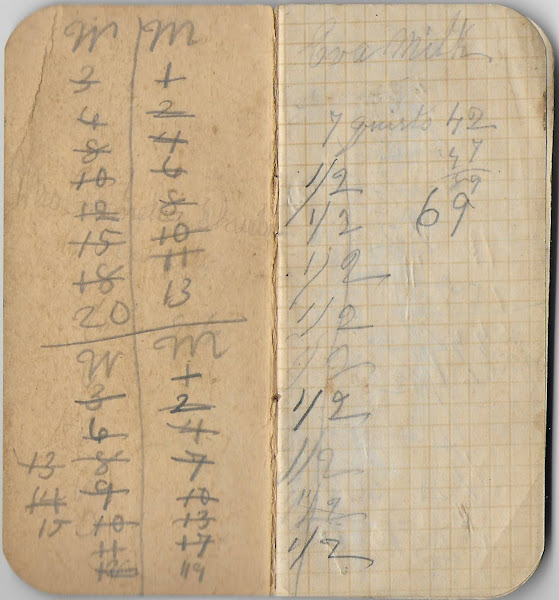 W M
3 1
4 2
8 4
10 6
12 8
15 10
18 11
20 13
W M
3 1
6 2
8 4
9 7
10 10
11 13
12 17
19
13
14
15
Eva Milk
7 quarts 42
1/2
1/2
69
1/2
1/2
1/2
1/2
1/2
1/2
1/2